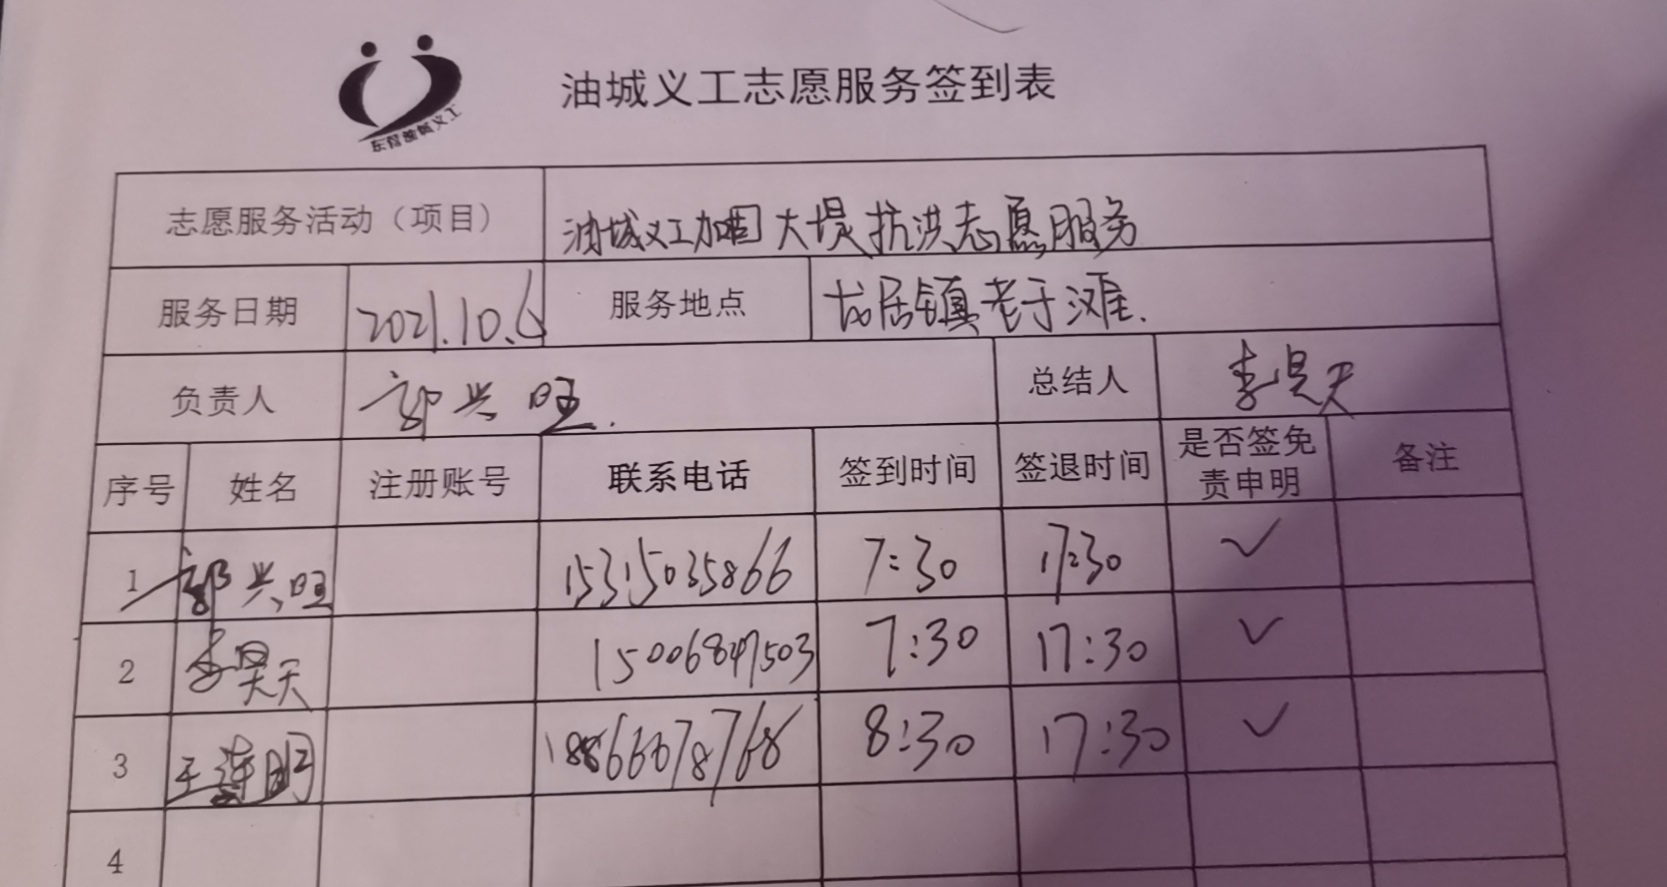 东营油城义工
油城义工志愿服务签到表
志愿服务活动（项目） 油城义工加固大堤抗洪志愿服务
服务日期 2021.10.6 服务地点 龙居镇老于滩.
负责人 郭兴旺. 总结人 李昊天
序号 姓名 注册账号 联系电话 签到时间 签退时间 是否签免责申明 备注
1 郭兴旺 15315035866 7:30 17:30 ✓
2 李昊天 15006847503 7:30 17:30 ✓
3 王莲明 18866678768 8:30 17:30 ✓
4